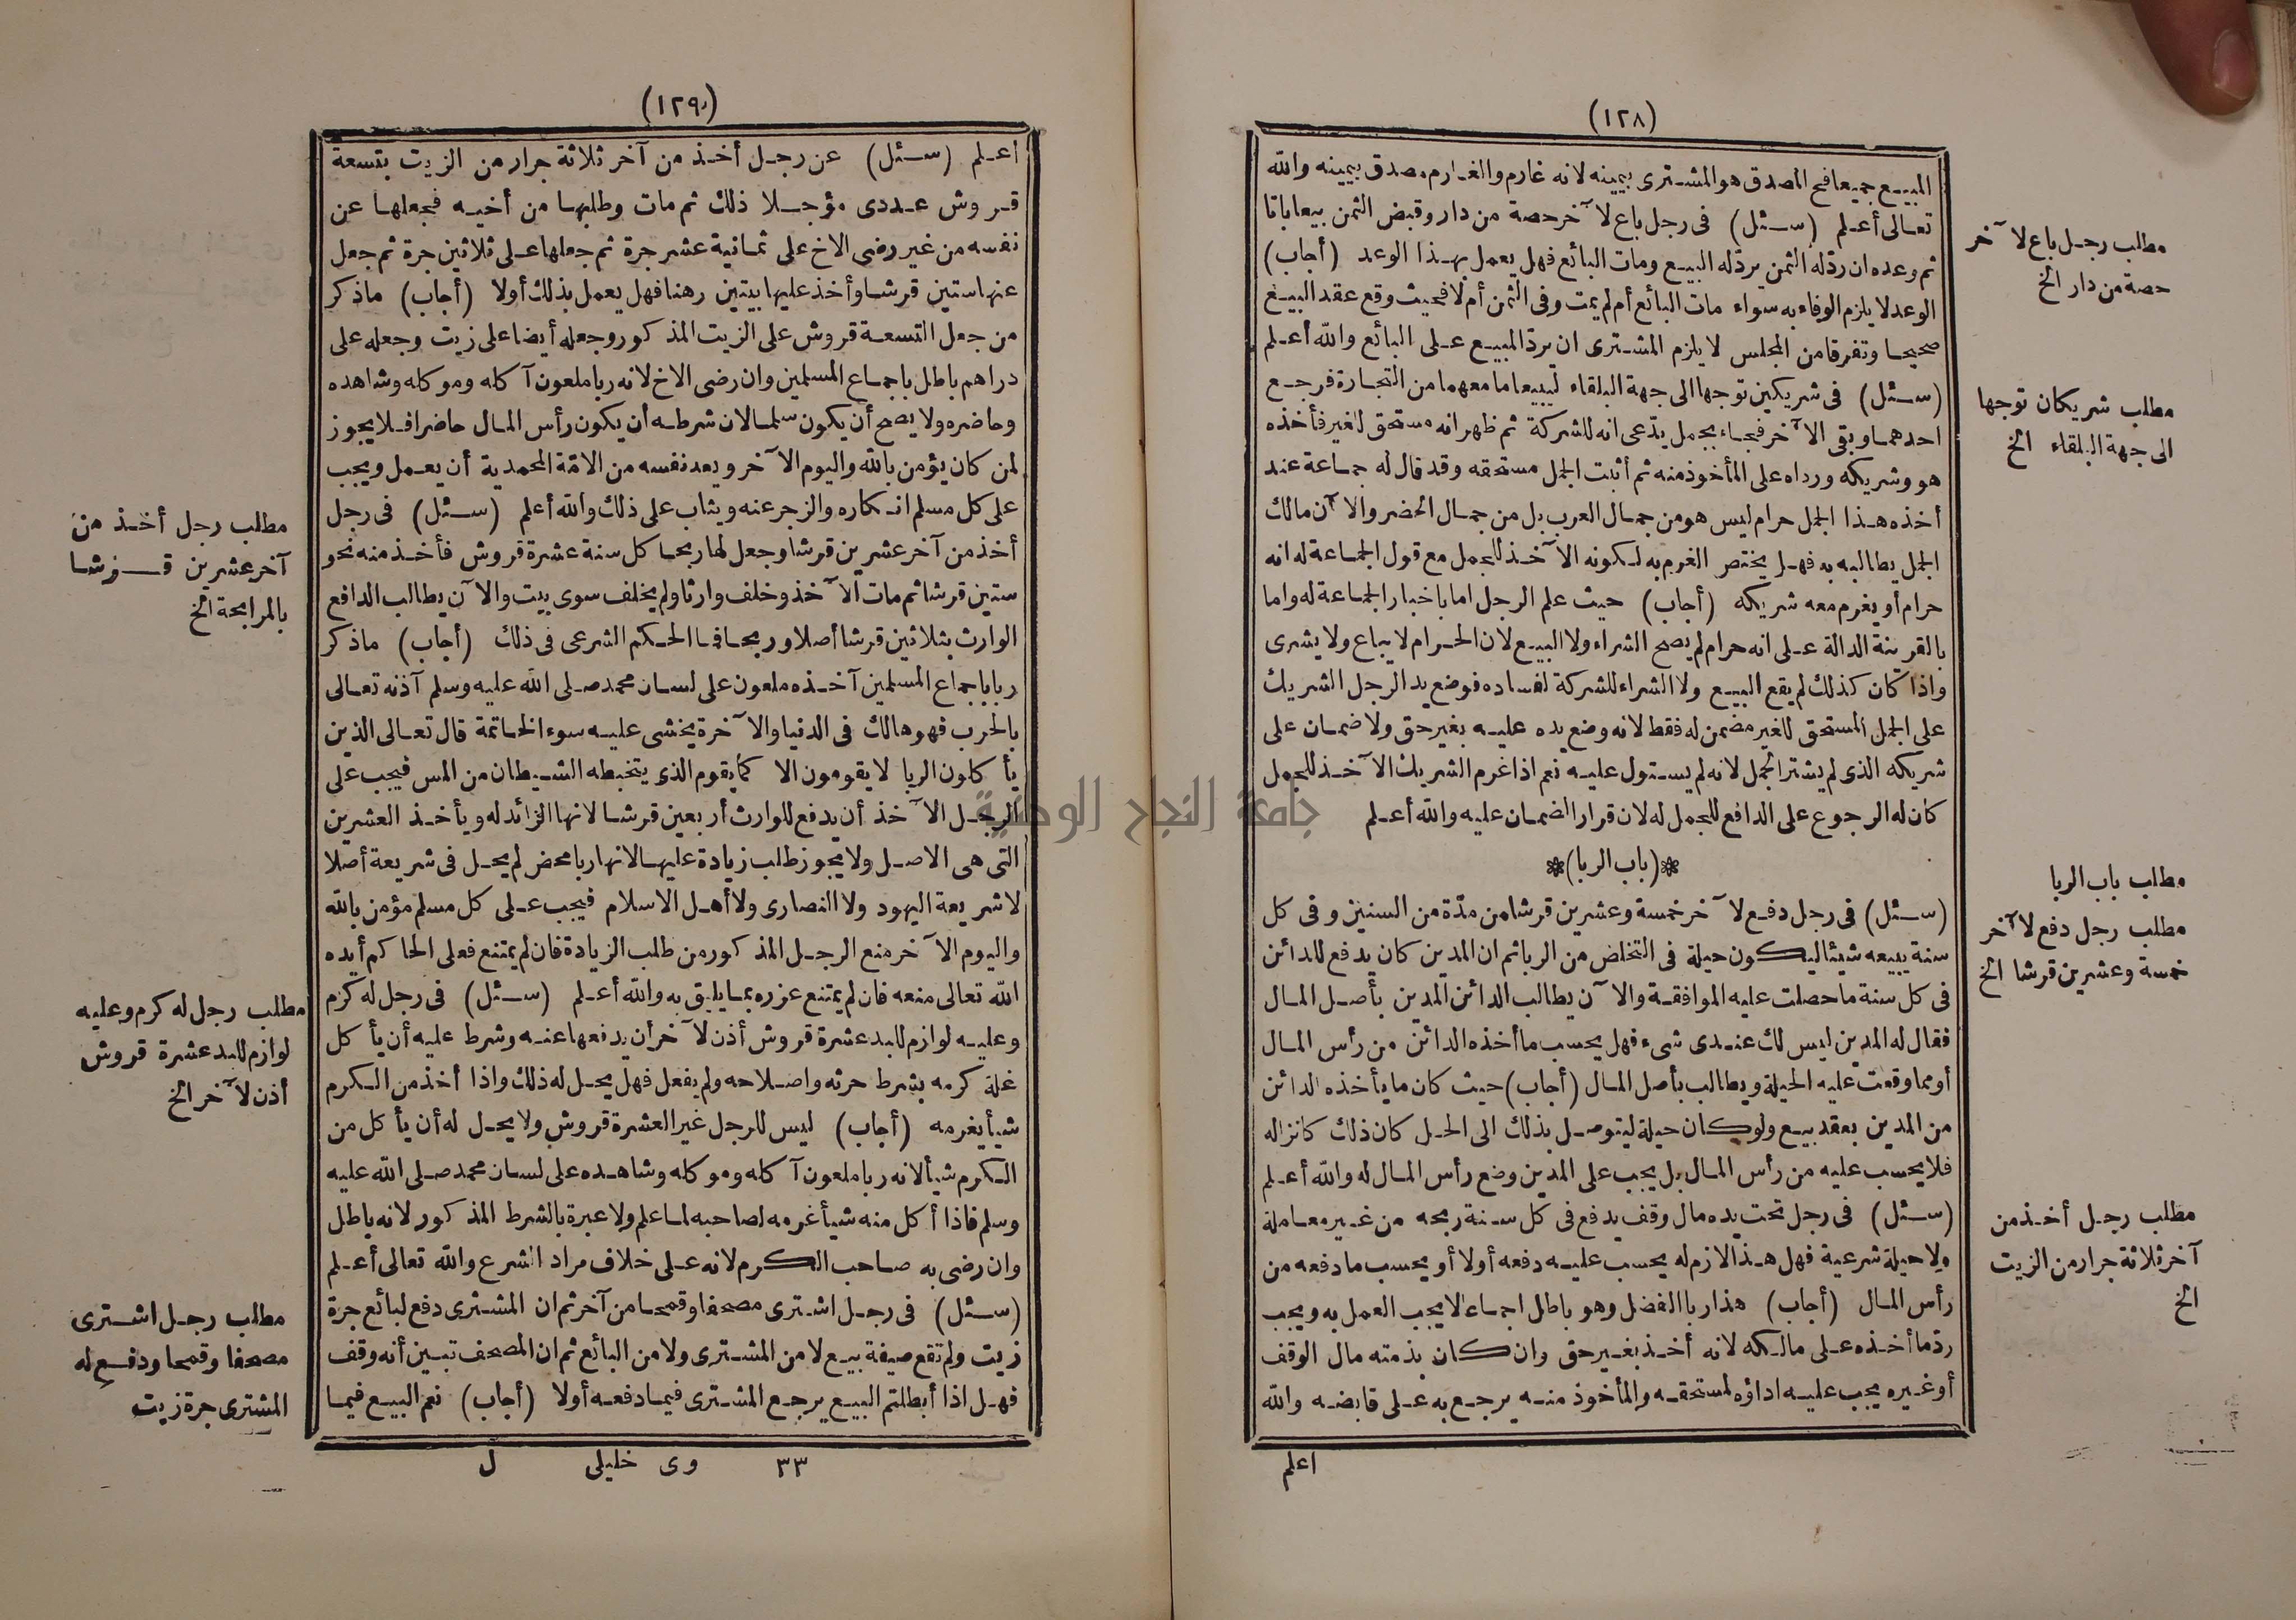 (١٢٨)
المبيع جميعا فح المصدق هو المشترى بيمينه لانه غارم والغارم مصدق بيمينه والله
تعالى أعلم (سئل) فى رجل باع لآخر حصة من دار وقبض الثمن بيعا باتا
ثم وعده ان ردّ له الثمن يردّ له البيع ومات البائع فهل يعمل بهذا الوعد (أجاب)
الوعد لا يلزم الوفاء به سواء مات البائع أم لم يمت وفى الثمن أم لا فحيث وقع عقد البيع
صحيحا وتفرقا من المجلس لا يلزم المشترى ان يردّ المبيع على البائع والله أعلم
(سئل) فى شريكين توجها الى جهة البلقاء ليبيعا ما معهما من التجارة فرجع
احدهما وبقى الآخر فجاء بجمل يدّعى انه للشركة ثم ظهر انه مستحق للغير فأخذه
هو وشريكه ورداه على المأخوذ منه ثم أثبت الجمل مستحقه وقد قال له جماعة عند
أخذه هذا الجمل حرام ليس هو من جمال العرب بل من جمال الحضر والآن مالك
الجمل يطالبه به فهل يختص الغرم به لكونه الآخذ للجمل مع قول الجماعة له انه
حرام أو يغرم معه شريكه (أجاب) حيث علم الرجل اما باخبار الجماعة له واما
بالقرينة الدالة على انه حرام لم يصح الشراء ولا البيع لان الحرام لا يباع ولا يشرى
واذا كان كذلك لم يقع البيع ولا الشراء للشركة لفساده فوضع يد الرجل الشريك
على الجمل المستحق للغير مضمن له فقط لانه وضع يده عليه بغير حق ولا ضمان على
شريكه الذى لم يشتر الجمل لانه لم يستول عليه نعم اذا غرم الشريك الآخذ للجمل
كان له الرجوع على الدافع للجمل له لان قرار الضمان عليه والله أعلم
*(باب الربا)*
(سئل) فى رجل دفع لآخر خمسة وعشرين قرشا من مدّة من السنين وفى كل
سنة يبيعه شيئا ليكون حيلة فى التخلص من الربا ثم ان المدين كان يدفع للدائن
فى كل سنة ما حصلت عليه الموافقة والآن يطالب الدائن المدين بأصل المال
فقال له المدين ليس لك عندى شىء فهل يحسب ما أخذه الدائن من رأس المال
أو مما وقعت عليه الحيلة ويطالب بأصل المال (أجاب) حيث كان ما يأخذه الدائن
من المدين بعقد بيع ولو كان حيلة ليتوصل بذلك الى الحل كان ذلك كانزاله
فلا يحسب عليه من رأس المال بل يجب على المدين وضع رأس المال له والله أعلم
(سئل) فى رجل تحت يده مال وقف يدفع فى كل سنة ربحه من غير معاملة
ولا حيلة شرعية فهل هذا لازم له يحسب عليه دفعه أولا أو يحسب ما دفعه من
رأس المال (أجاب) هذا ربا الفضل وهو باطل اجماعا لا يجب العمل به ويجب
ردّ ما أخذه على مالكه لانه أخذ بغير حق وان كان بذمته مال الوقف
أو غيره يجب عليه اداؤه لمستحقه والمأخوذ منه يرجع به على قابضه والله
اعلم
مطلب رجل باع لآخر
حصة من دار الخ
مطلب شريكان توجها
الى جهة البلقاء الخ
مطلب باب الربا
مطلب رجل دفع لآخر
خمسة وعشرين قرشا الخ
مطلب رجل أخذ من
آخر ثلاثة جرار من الزيت
الخ
(١٢٩)
أعلم (سئل) عن رجل أخذ من آخر ثلاثة جرار من الزيت بتسعة
قروش عددى مؤجلا ذلك ثم مات وطلبها من أخيه فجعلها عن
نفسه من غير رضى الاخ على ثمانية عشر جرة ثم جعلها على ثلاثين جرة ثم جعل
عنها ستين قرشا وأخذ عليها بيتين رهنا فهل يعمل بذلك أولا (أجاب) ما ذكر
من جعل التسعة قروش على الزيت المذكور وجعله أيضا على زيت وجعله على
دراهم باطل باجماع المسلمين وان رضى الاخ لانه ربا ملعون آكله وموكله وشاهده
وحاضره ولا يصح أن يكون سلما لان شرطه أن يكون رأس المال حاضرا فلا يجوز
لمن كان يؤمن بالله واليوم الآخر ويعد نفسه من الامّة المحمدية أن يعمل ويجب
على كل مسلم انكاره والزجر عنه ويثاب على ذلك والله أعلم (سئل) فى رجل
أخذ من آخر عشرين قرشا وجعل لها ربحا كل سنة عشرة قروش فأخذ منه نحو
ستين قرشا ثم مات الآخذ وخلف وارثا ولم يخلف سوى بيت والآن يطالب الدافع
الوارث بثلاثين قرشا أصلا وربحا فما الحكم الشرعى فى ذلك (أجاب) ما ذكر
ربا باجماع المسلمين آخذه ملعون على لسان محمد صلى الله عليه وسلم آذنه تعالى
بالحرب فهو هالك فى الدنيا والآخرة يخشى عليه سوء الخاتمة قال تعالى الذين
يأكلون الربا لا يقومون الا كما يقوم الذى يتخبطه الشيطان من المس فيجب على
الرجل الآخذ أن يدفع للوارث أربعين قرشا لانها الزائد له ويأخذ العشرين
التى هى الاصل ولا يجوز طلب زيادة عليها لانها ربا محض لم يحل فى شريعة أصلا
لا شريعة اليهود ولا النصارى ولا أهل الاسلام فيجب على كل مسلم مؤمن بالله
واليوم الآخر منع الرجل المذكور من طلب الزيادة فان لم يمتنع فعلى الحاكم أيده
الله تعالى منعه فان لم يمتنع عزره بما يليق به والله أعلم (سئل) فى رجل له كرم
وعليه لوازم للبد عشرة قروش أذن لآخر أن يدفعها عنه وشرط عليه أن يأكل
غلة كرمه بشرط حرثه واصلاحه ولم يفعل فهل يحل له ذلك واذا أخذ من الكرم
شيأ يغرمه (أجاب) ليس للرجل غير العشرة قروش ولا يحل له أن يأكل من
الكرم شيأ لانه ربا ملعون آكله وموكله وشاهده على لسان محمد صلى الله عليه
وسلم فاذا أكل منه شيأ غرمه لصاحبه لما علم ولا عبرة بالشرط المذكور لانه باطل
وان رضى به صاحب الكرم لانه على خلاف مراد الشرع والله تعالى أعلم
(سئل) فى رجل اشترى مصحفا وقمحا من آخر ثم ان المشترى دفع لبائع جرة
زيت ولم تقع صيغة بيع لا من المشترى ولا من البائع ثم ان المصحف تبين أنه وقف
فهل اذا أبطلتم البيع يرجع المشترى فيما دفعه أولا (أجاب) نعم البيع فيما
٣٣ وى خليلى ل
مطلب رجل أخذ من
آخر عشرين قرشا
بالمرابحة الخ
مطلب رجل له كرم وعليه
لوازم للبد عشرة قروش
أذن لآخر الخ
مطلب رجل اشترى
مصحفا وقمحا ودفع له
المشترى جرة زيت
جامعة النجاح الوطنية